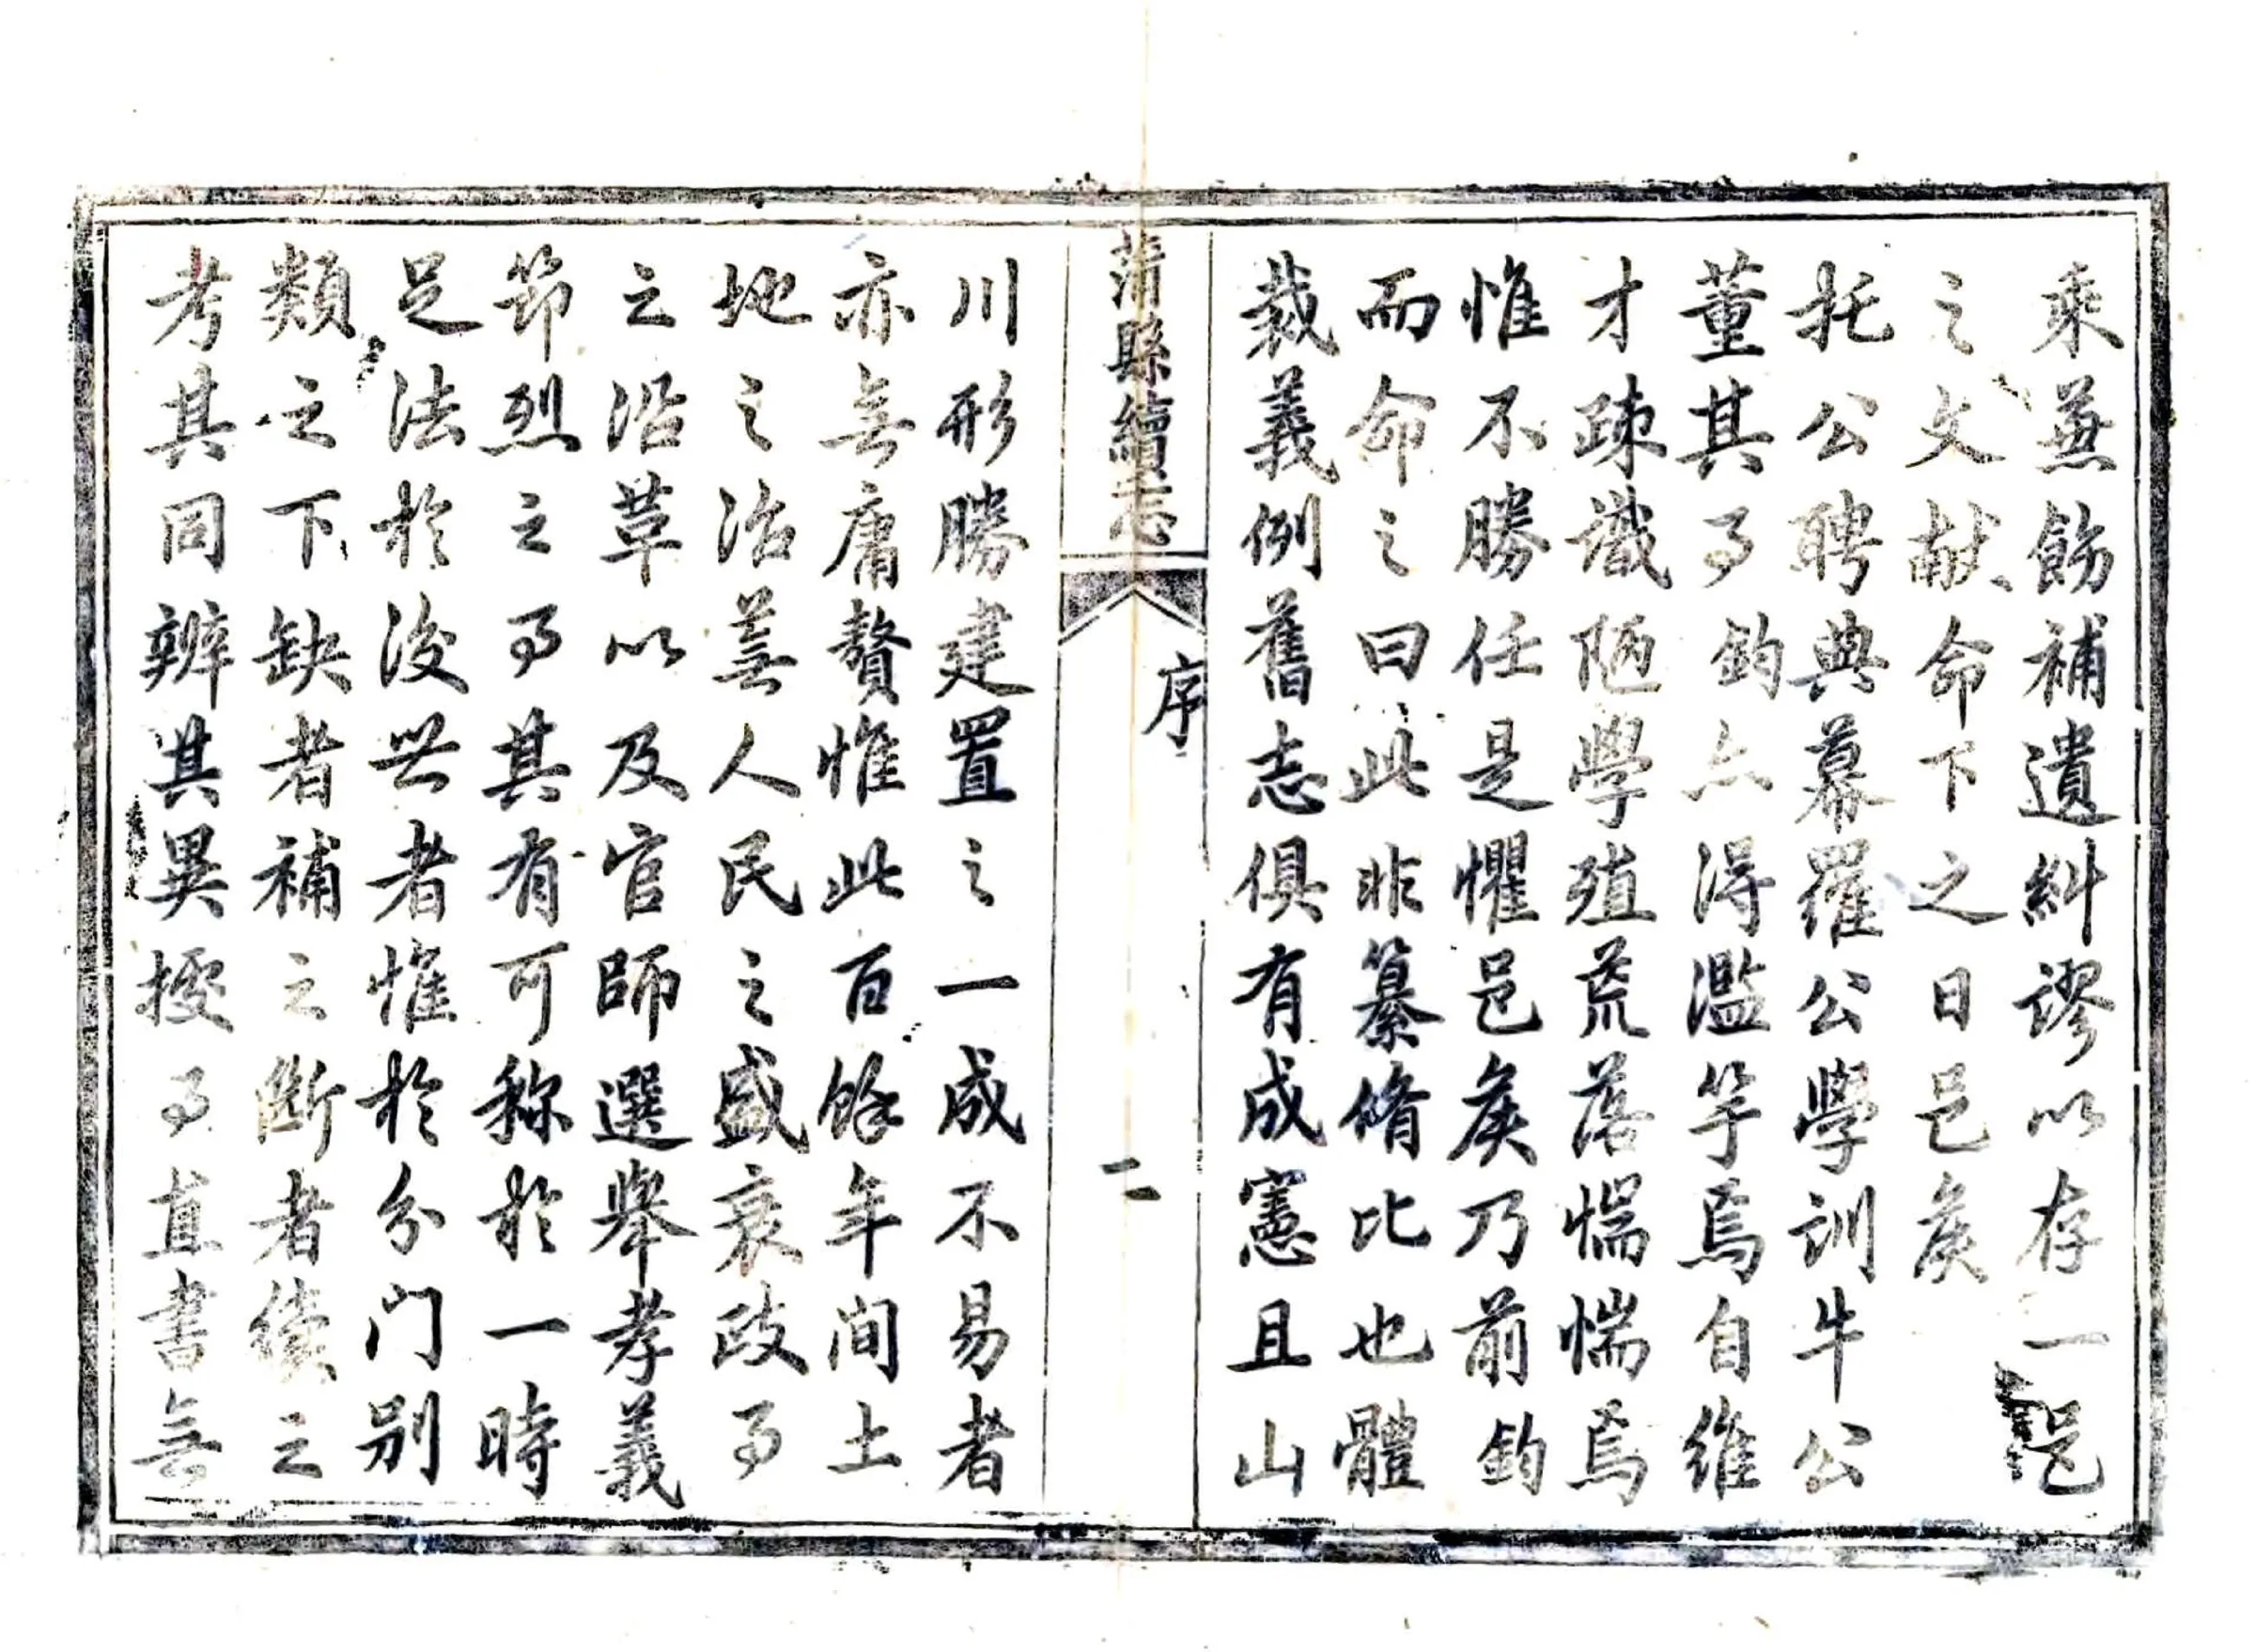 乘蕪飭補遺糾謬以存一邑
之文献命下之日邑矦
托公聘典幕羅公學訓牛公
董其事鈞亦淂濫竽焉自維
才疎識陋學殖荒落惴惴焉
惟不勝任是懼邑矦乃前鈞
而命之曰此非纂脩比也體
裁義例舊志俱有成憲且山
蒲縣續志
序
二
川形勝建置之一成不易者
亦無庸贅惟此百餘年间土
地之治蕪人民之盛衰政事
之沿革以及官師選舉孝義
節烈之事其有可称於一時
足法於後世者惟於分门别
類之下缺者補之斷者續之
考其同辨其異援事直書無